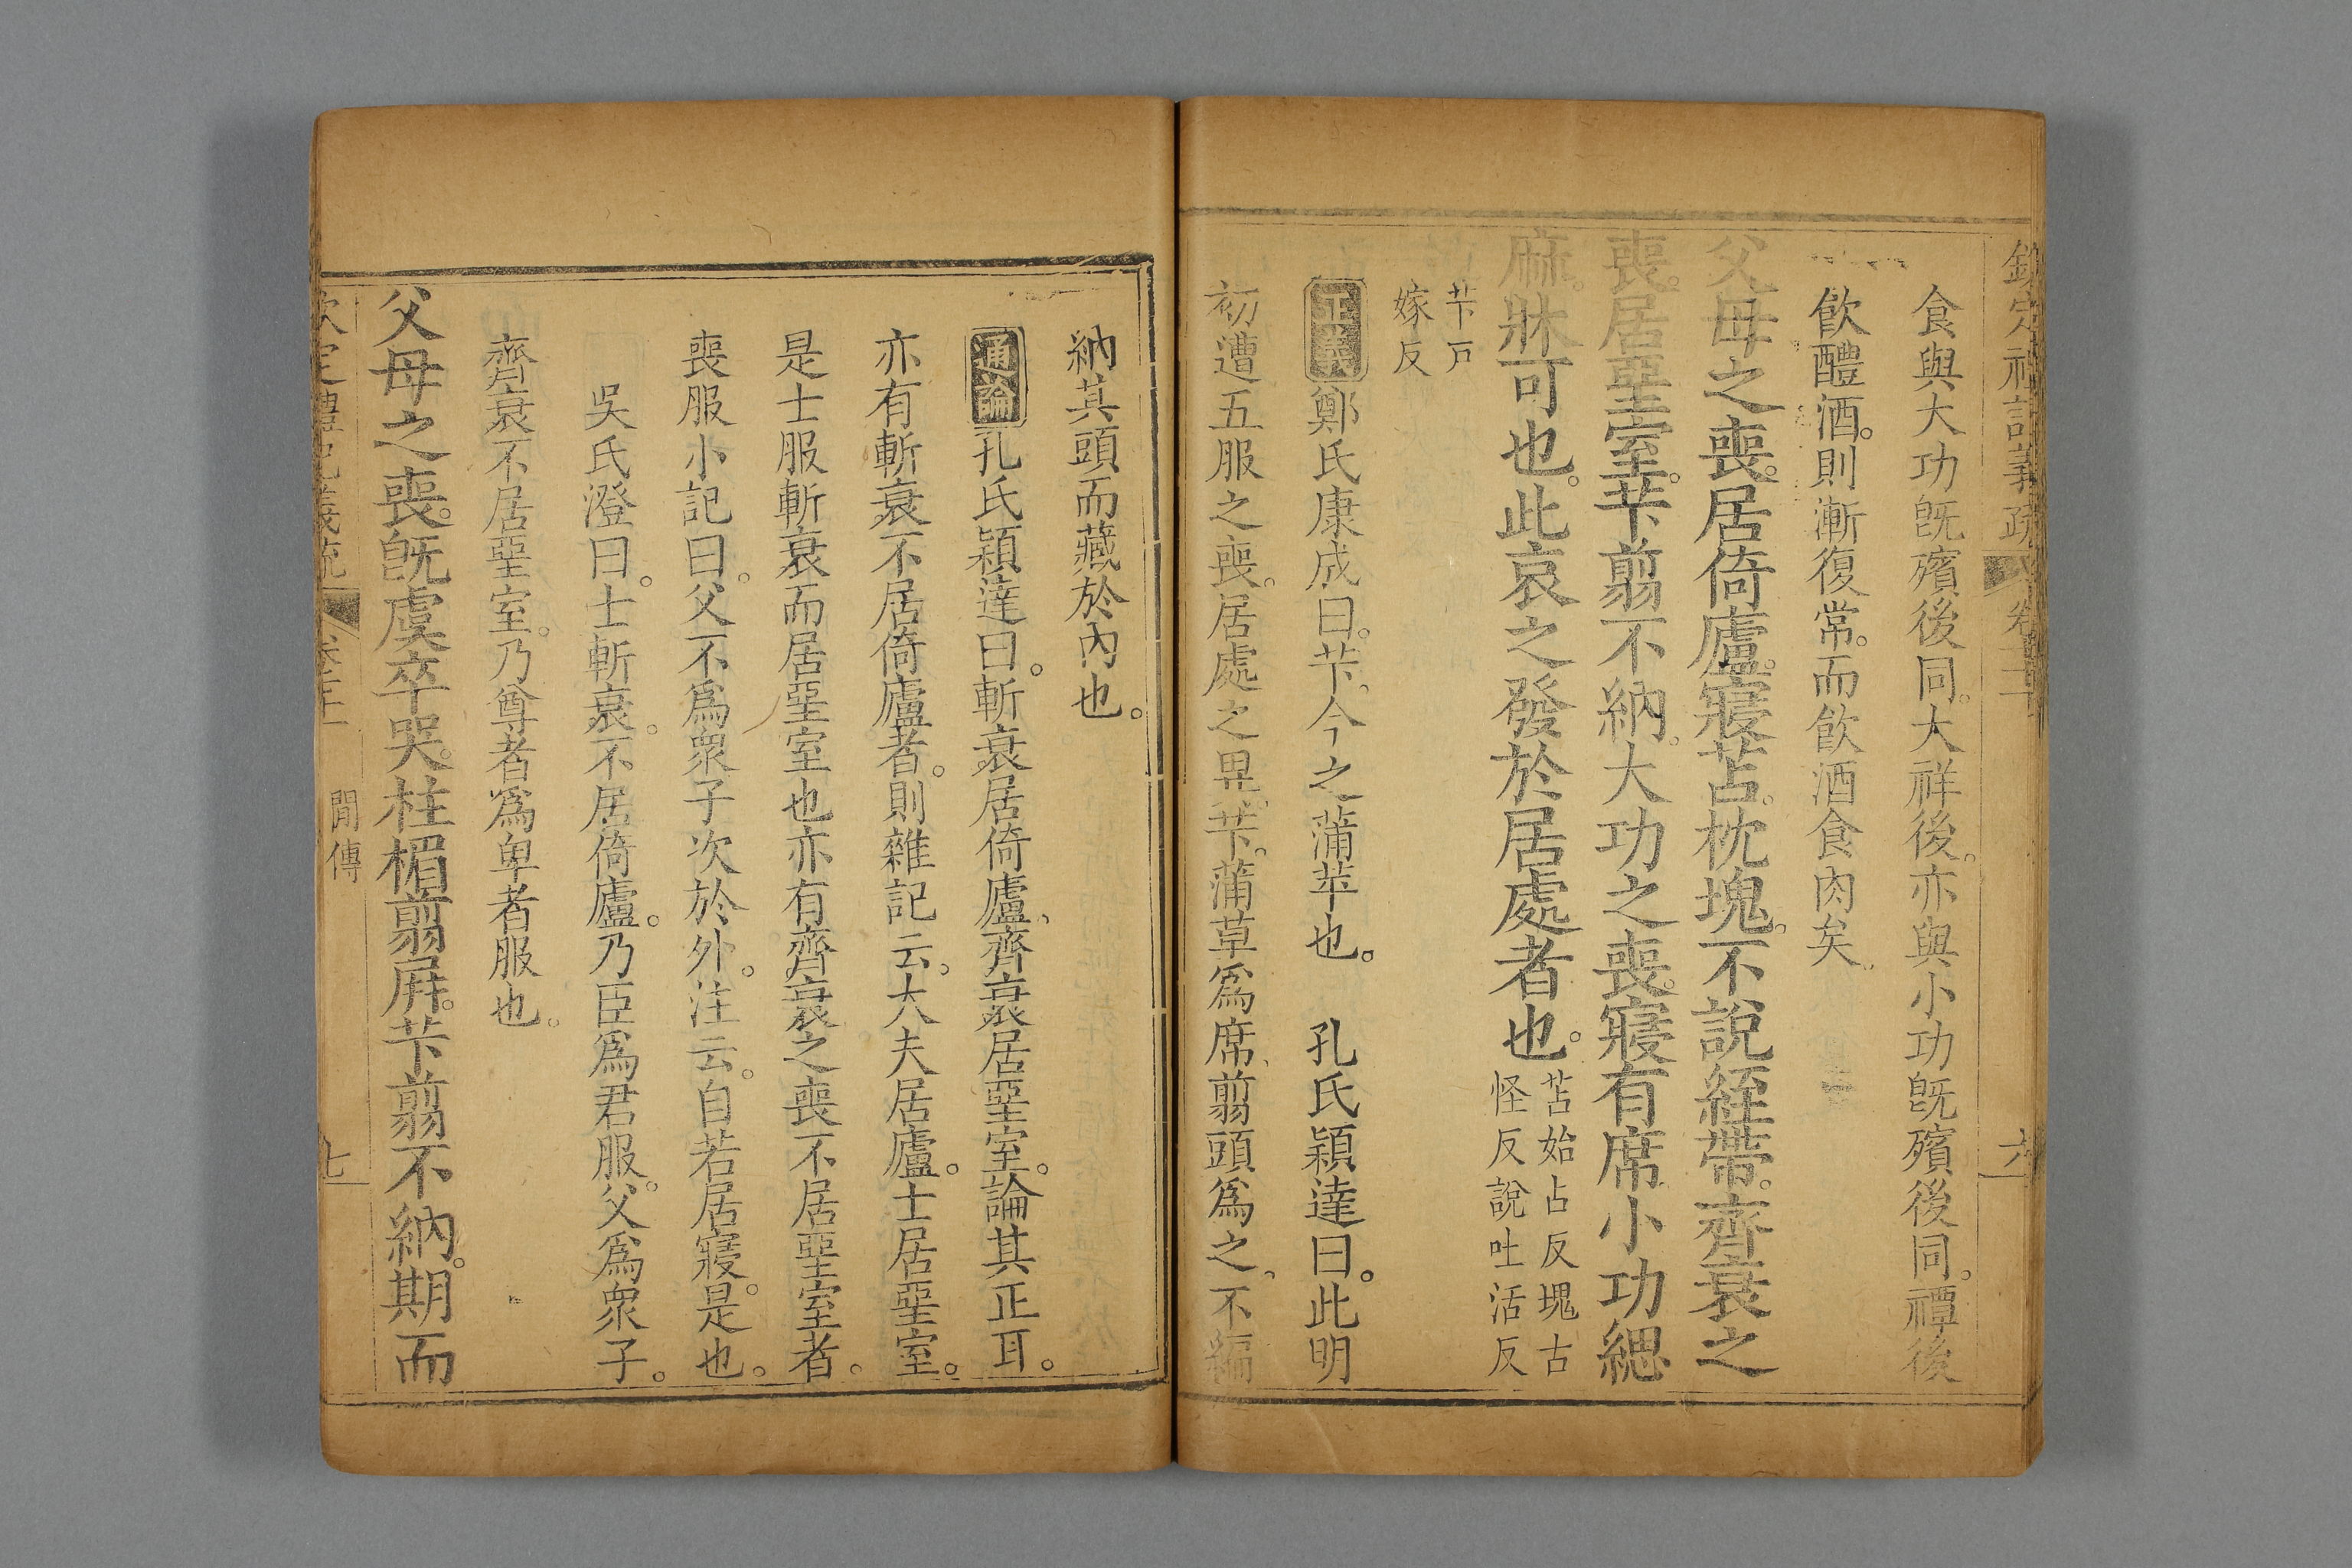 欽定禮記義疏 卷 六
食與大功旣殯後同。大祥後。亦與小功旣殯後同。禫後
飲醴酒。則漸復常。而飲酒食肉矣。
父母之喪。居倚廬。寢苫。枕塊。不說絰帶。齊衰之
喪。居堊室。芐翦不納。大功之喪。寢有席。小功緦
麻。牀可也。此哀之發於居處者也。苫始占反塊古
怪反說吐活反
芐戸
嫁反
正義 鄭氏康成曰。芐。今之蒲苹也。 孔氏穎達曰。此明
初遭五服之喪。居處之異。芐。蒲草爲席、翦頭爲之、不編
納其頭而藏於內也。
通論 孔氏穎達曰。斬衰居倚廬、齊衰居堊室。論其正耳。
亦有斬衰不居倚廬者。則雜記云。大夫居廬。士居堊室。
是士服斬衰而居堊室也亦有齊衰之喪不居堊室者。
喪服小記曰。父不爲衆子次於外。注云。自若居寢。是也。
吳氏澄曰。士斬衰。不居倚廬。乃臣爲君服。父爲衆子。
齊衰不居堊室。乃尊者爲卑者服也。
父母之喪。旣虞卒哭。柱楣翦屏。芐翦不納。期而
欽定禮記義疏 卷 閒傳 七